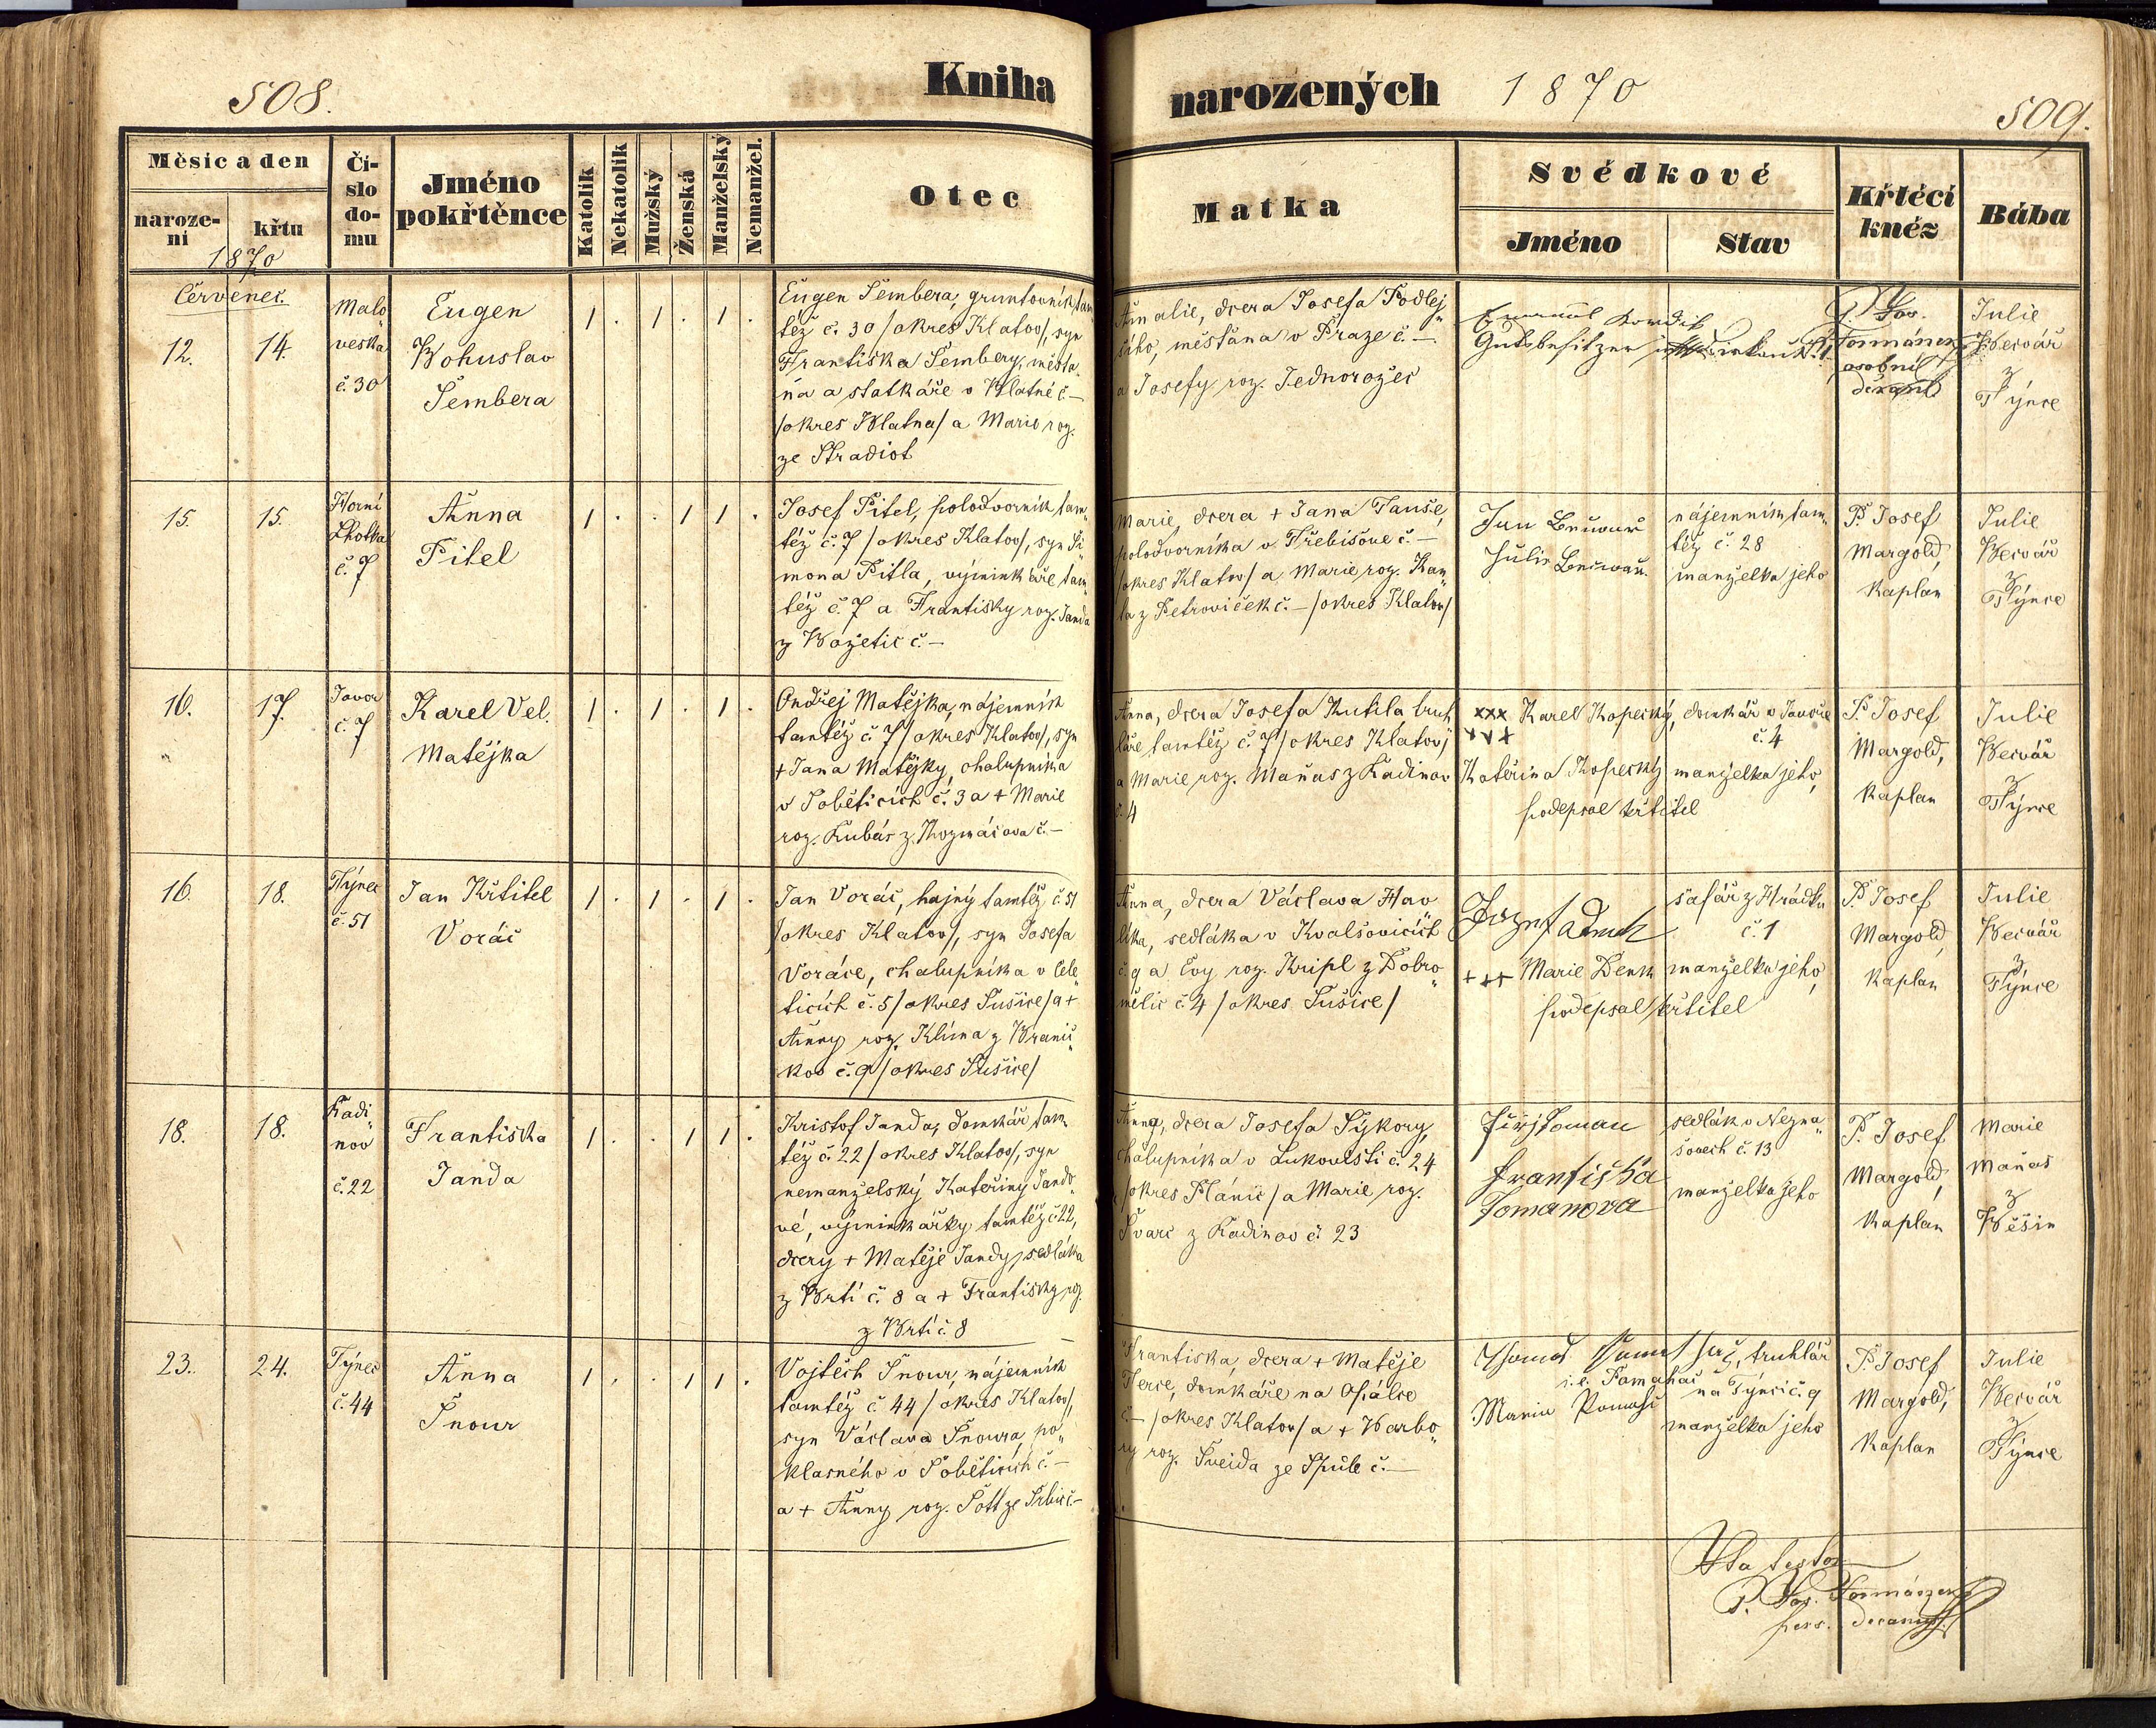 508.
Kniha
narozených 1870
509.
Měsíc a den
naroze-
ní
křtu
1870
Čí-
slo
do-
mu
Jméno
pokřtěnce
Katolík
Nekatolík
Mužský
Ženská
Manželský
Nemanžel.
Otec
Matka
Svědkové
Jméno
Stav
Křtěcí
kněz
Bába
Červenec.
12.
14.
Malo
veska
č. 30
Eugen
Bohuslav
Šembera
1 . 1 . 1 .
Eugen Šembera, gruntovník tam
též č. 30 /okres Klatov/, syn
Františka Šembery, mešťa
na a statkáře v Blatné č –
/okres Blatna/ a Marie roz.
ze Stradiot
Amalie, dcera Josefa Podlej
šího, měšťana v Praze č. –
a Josefy roz. Jednorožec
Gutsbesitzer
P. Jos.
Formánek
osobní
děkan
Julie
Bečvář
z
Týnce
15.
15.
Horní
Lhotka
č. 7
Anna
Pitel
1 . . 1 1 .
Josef Pitel, polodvorník tam„
též č. 7 /okres Klatov/, syn Ši
mona Pitla, výminkáře tam
též č 7 a Františky roz. Janda
z Božetic č. –
Marie, dcera + Jana Tauše,
polodvorníka v Třebišove č. –
/okres Klatov/ a Marie roz. Kan
ta z Petroviček č. – /okres Klatov/
Jan
Julie
nájemník tam„
též č. 28
manželka jeho
P. Josef
Margold,
Kaplan
Julie
Bečvář
z
Týnce
16.
17.
Javor
č. 7
Karel Vel.
Matějka
1 . 1 . 1 .
Ondřej Matějka, nájemník
tamtéž č. 7 /okres Klatov/, syn
+ Jana Matějky, chalupníka
v Soběticích č. 3 a + Marie
roz. Kubás z Kozmáčova č. –
Anna, dcera Josefa Kutila truh
láře tamtéž č. 7 /okres Klatov/
a Marie roz. Maňas z Kadinov
č. 4
xxx Karel Kopecký, domkář v Javoře
+++ č. 4
Kateřina Kopecký manželka jeho,
podepsal křtitel
P. Josef
Margold,
Kaplan
Julie
Bečvář
z
Týnce
16.
18.
Týnec
č. 51
Jan Křtitel
Voráč
1 . 1 . 1 .
Jan Voráč, hajný tamtéž č. 51
/okres Klatov/, syn Josefa
Voráče, chalupníka v Cele
ticích č. 5 /okres Sušice/ a +
Anny roz. Klima z Branič
kov č. 9 /okres Sušice/
Anna, dcera Václava Hav
lika, sedláka v Kvalšovicích
č. 9 a Evy roz. Kripl z Dobro„
mělic č 4 /okres Sušice/
Josef Denk
šafář z Hrádku
č. 1
+++ Marie Denk manželka jeho,
podepsal křtitel
P. Josef
Margold,
Kaplan
Julie
Bečvář
z
Týnce
18.
18.
Kadi„
nov
č. 22
Františka
Janda
1 . . 1 1 .
Kristof Janda, domkář tam
též č. 22 /okres Klatov/, syn
nemanželský Kateřiny Jando
vé, výminkářky tamtéž č 22,
dcery + Matěje Jandy, sedláka
z Brtí č. 8 a + Františky roz.
z Brtí č. 8
Anna, dcera Josefa Sýkory,
chalupníka v Lukovisti č. 24
/okres Plánic/ a Marie roz.
Švarc z Kadinov č. 23
Jiří Toman
Františka
Tomanova
sedlák v Nezna„
šovech č. 13
manželka jeho
P. Josef
Margold,
Kaplan
Marie
Maňas
z
Běšin
23.
24.
Týnec
č. 44
Anna
Šnour
1 . . 1 1 .
Vojtěch Šnour, nájemník
tamtéž č 44 /okres Klatov/,
syn Václava Šnoura, po„
klasného v Soběticích č. –
a + Anny roz. Šott ze Srbic č. –
Františka, dcera + Matěje
Terče, domkáře na Opálce
č – /okres Klatov/ a + Barbo„
ry roz. Šveida ze Spůle č. –
truhlář
i. e. Pomahač na Týnci č. 9
manželka jeho
P. Josef
Margold,
Kaplan
Julie
Bečvář
z
Týnce
Ita testor
P. Jos. Formánek
pers. decanus